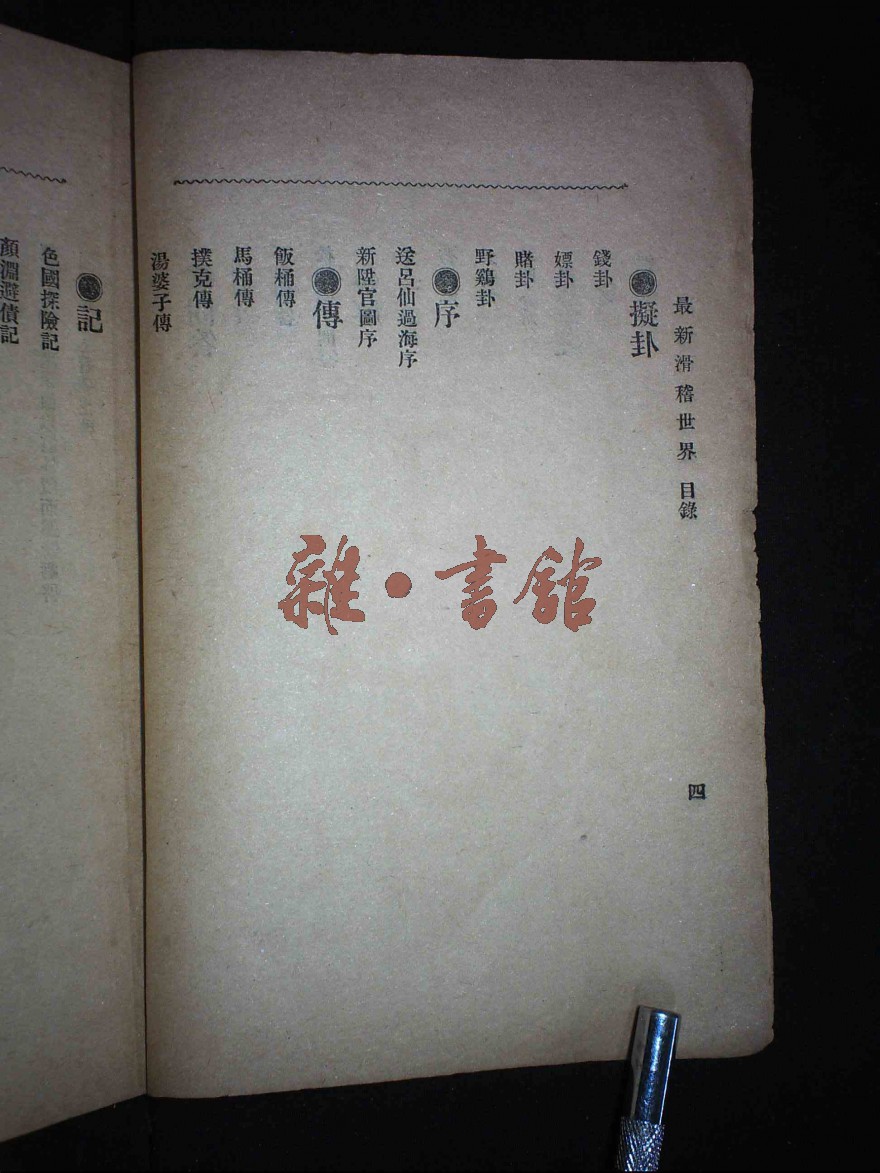 最新滑稽世界 目錄
四
擬卦
錢卦
嫖卦
賭卦
野鷄卦
序
送呂仙過海序
新陞官圖序
傳
飯桶傳
馬桶傳
撲克傳
湯婆子傳
記
色國探險記
顏淵避債記
雜·書館